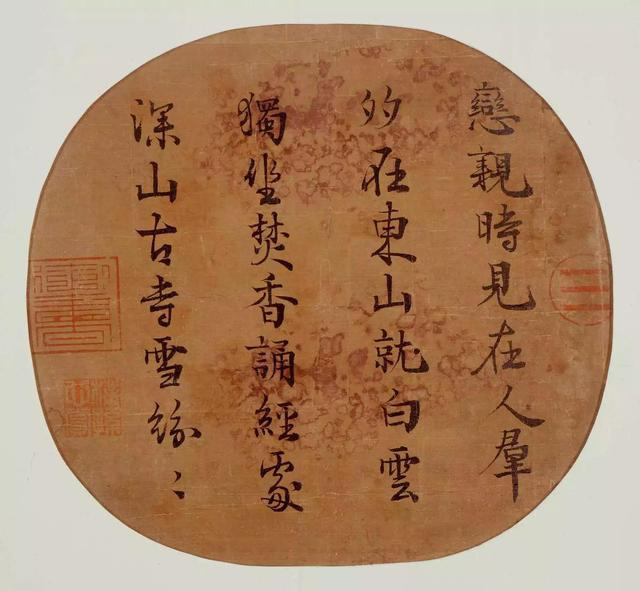 戀親時見在人羣
多在東山就白雲
獨坐焚香誦經處
深山古寺雪紛〻